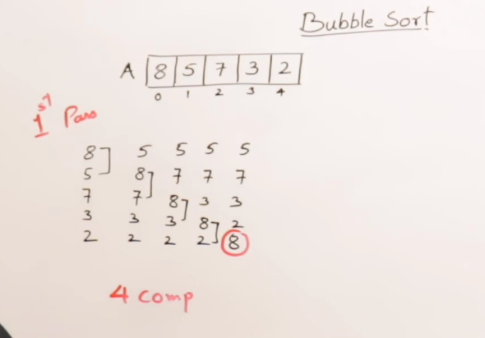 Bubble Sort
A 8 5 7 3 2
0 1 2 3 4
1st Pass
8 5 5 5 5
5 8 7 7 7
7 7 8 3 3
3 3 3 8 2
2 2 2 2 8
4 comp